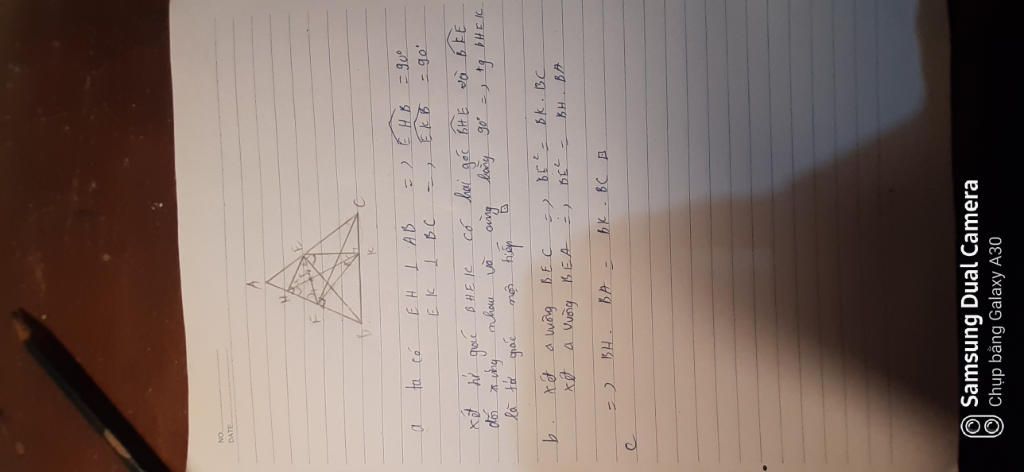 NO
DATE
A
H
E
F
I
B
K
C
a ta có EH ⊥ AB => EHB = 90°
EK ⊥ BC => EKB = 90°
xét tứ giác BHEK có hai góc BHE và BKE
đối xứng nhau và cùng bằng 90° => tg BHEK
là tứ giác nội tiếp
b. xét Δ vuông BEC => BE² = BK. BC
xét Δ vuông BEA => BE² = BH. BA
=> BH. BA = BK. BC
c
Samsung Dual Camera
Chụp bằng Galaxy A30